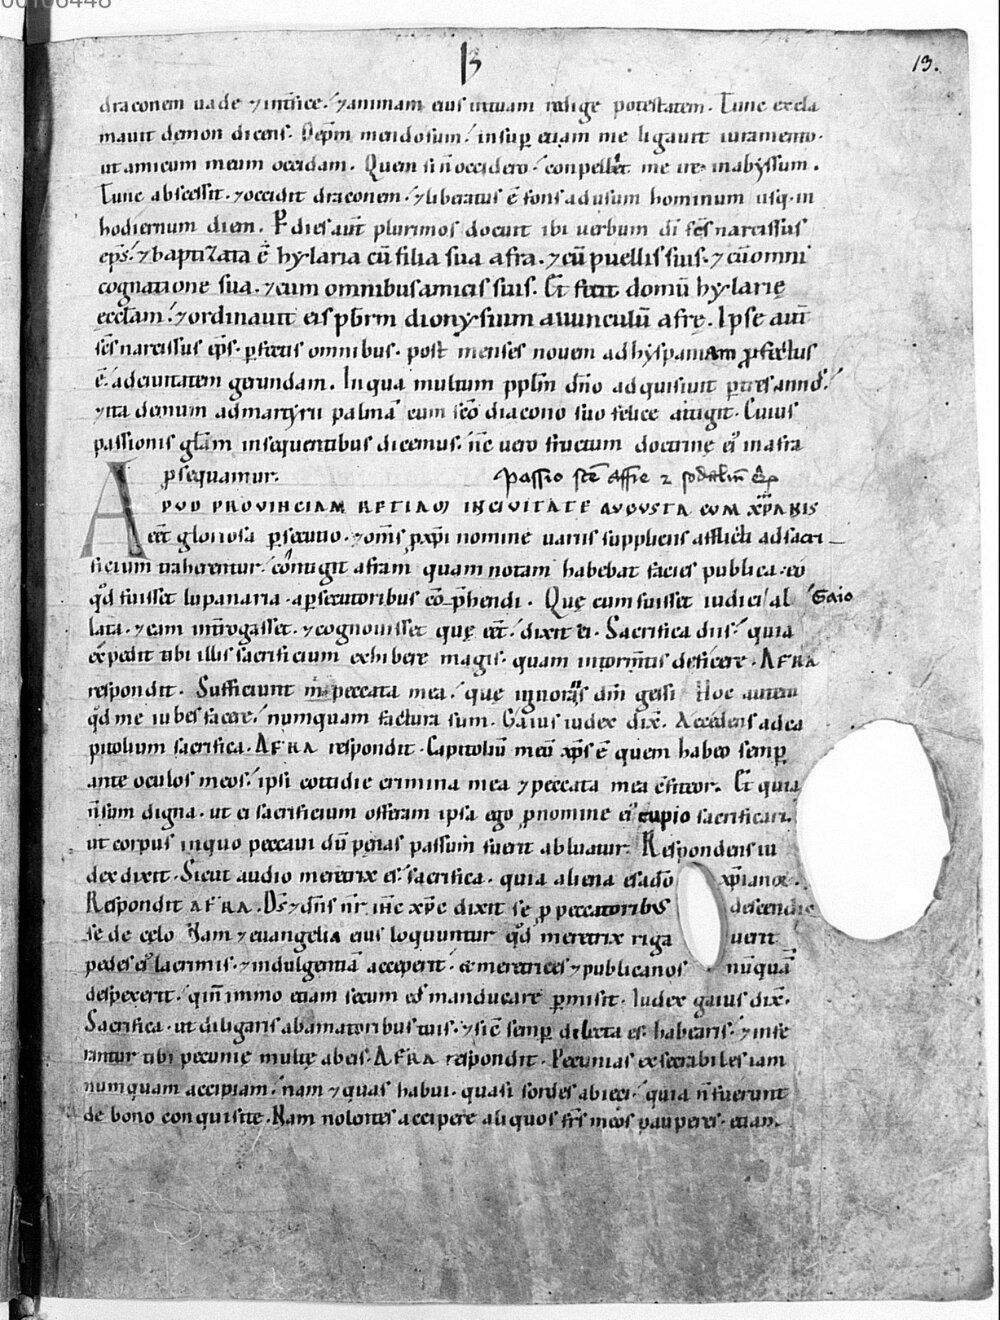 00106448
13
13.
draconem uade ⁊ int̄fice. ⁊animam eius intuam redige potestatem. Tunc excla
mauit demon dicens. O ep̄m mendosum. insup̱ etiam me ligauit iuramento.
ut amicum meum occidam. Quem si n̄ occidero. conpellet me ire inabyssum.
Tunc abscessit. ⁊occidit draconem. ⁊liberatus ē fons adusum hominum usq. in
hodiernum diem. P dies aut̄ plurimos docuit ibi uerbum dī sc̄s narcissus
ep̄s. ⁊baptizata ē hylaria cū filia sua afra. ⁊cū puellis suis. ⁊cū omni
cognatione sua. ⁊cum omnibus amicis suis. Et fecit domū hylarię
eccl̄am. ⁊ordinauit eis pb̄rm dionysium auunculū afrę. Ipse aut̄
sc̄s narcissus ep̄s. p̱fectis omnibus. post menses nouem ad hyspaniam p̱fectus
ē. adciuitatem gerundam. In qua multum ppl̄m dn̄o adquisiuit p̱ tres annos.
⁊ita demum admartyrii palmā cum sc̄o diacono suo felice attigit. Cuius
passionis gl̄am insequentibus dicemus. n̄c uero fructum doctrinę ei᾽ in afra
p̱sequamur.
Passio sc̄e Affre ⁊ sodaliū ei᾽
APUD PROVINCIAM RETIAM INCIVITATE AVGVSTA CVM XP̄IANIS
eēt gloriosa p̱secutio. ⁊om̄s p̱ xp̄i nomine uariis suppliciis afflicti adsacri
ficium traherentur. cōtigit afram quam notam habebat facies publica. eo
q̄d fuisset lupanaria. ap̱secutoribus cōp̄hendi. Quę cum fuisset iudici al Gaio
lata. ⁊eam int̄rogasset. ⁊cognouisset quę eēt. dixit ei. Sacrifica diis. quia
expedit tibi illis sacrificium exhibere magis. quam intorm̄tis deficere. AFRA
respondit. Sufficiunt m̄ peccata mea. quę ignorans dm̄ gessi. Hoc autem
q̄d me iubes facere. numquam factura sum. Gaius iudex dix̄. Accedens adca
pitolium sacrifica. AFRA respondit. Capitoliū meū xp̄s ē quem habeo semp̱
ante oculos meos. ipsi cottidie crimina mea ⁊peccata mea c̄fiteor. Et quia
n̄ sum digna. ut ei sacrificium offeram ipsa ego p̱ nomine ei᾽ cupio sacrificari.
ut corpus inquo peccaui dū pęnas passum fuerit abluatur. Respondens iu
dex dixit. Sicut audio meretrix es. sacrifica. quia aliena es adō xp̄ianoꝝ.
Respondit AFRA. D̄s ⁊dn̄s nr̄ ih̄c xp̄c dixit se p̱ peccatoribus descendis
se de celo. Nam ⁊ euangelia eius loquuntur q̄d meretrix riga uerit
pedes ei᾽ lacrimis. ⁊indulgentiā acceperit. & meretrices ⁊publicanos nūquā
despexerit. quin immo etiam secum eos manducare p̱misit. Iudex gaius dix̄.
Sacrifica. ut diligaris abamatoribus tuis. ⁊sic semp̱ dilecta es. habearis. ⁊infe
rantur tibi pecunię multę abeis. AFRA respondit. Pecunias exsecrabiles iam
numquam accipiam. nam ⁊quas habui. quasi sordes abieci. quia n̄ fuerunt
de bono conquisite. Nam nolentes accipere aliquos fr̄s meos pauperes. etiam.